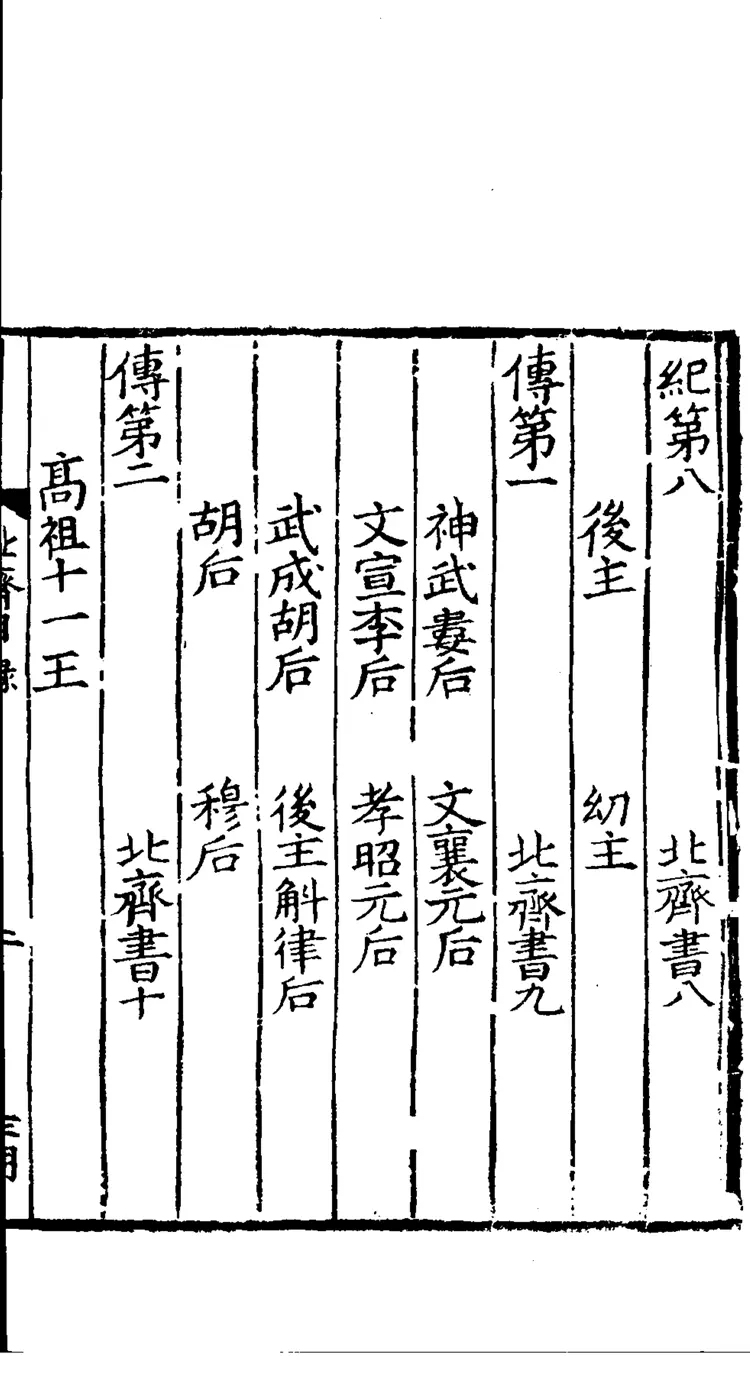 紀第八 北齊書八
後主 幼主
傳第一 北齊書九
神武婁后 文襄元后
文宣李后 孝昭元后
武成胡后 後主斛律后
胡后 穆后
傳第二 北齊書十
高祖十一王
北齊目錄 二